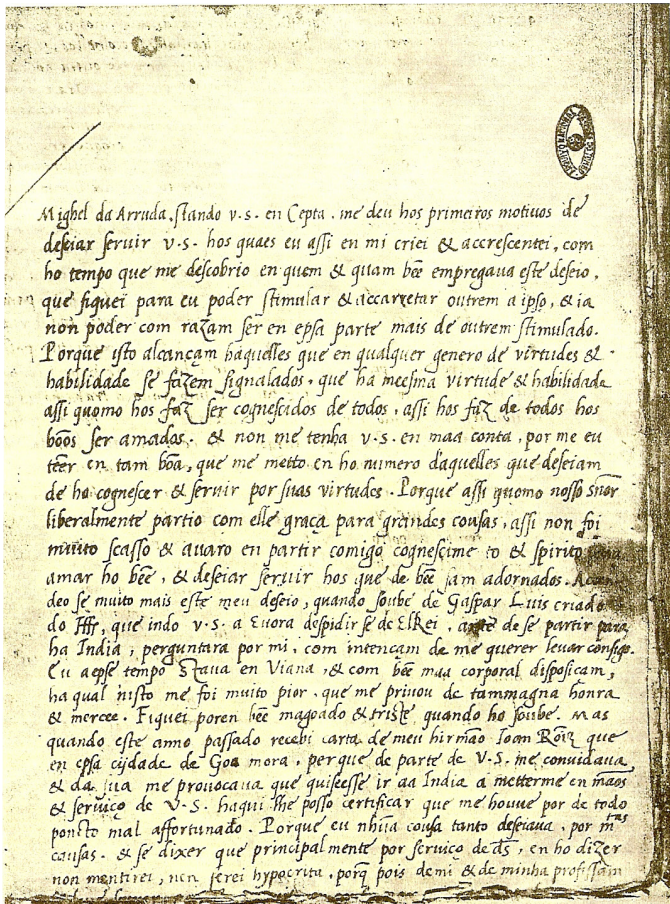 ARQUIVO NACIONAL TORRE DO TOMBO
Mighel da Arruda, stando v.s. en Cepta. me deu hos primeiros motivos de
deseiar servir v.s. hos quaes eu assi en mi criei & accrescentei, com
ho tempo que me descobrio en quem & quam bẽe empregava este deseio,
que fiquei para eu poder stimular & accarretar outrem a ipso, & ia
non poder com razam ser en epsa parte mais de outrem stimulado.
Porque isto alcançam haquelles que en qualquer genero de virtudes &
habilidade se fazem signalados. que ha meesma virtude & habilidade
assi quomo hos faz ser cognesçados de todos, assi hos faz de todos hos
bõos ser amados. & non me tenha v.s. en maa conta, por me eu
tẽer en tam bõa, que me metto en ho numero daquelles que deseiam
de ho cognescer & servir por suas virtudes. Porque assi quomo nosso Snõr
liberalmente partio com elle graça para grandes cousas, assi non foi
muito scasso & avaro en partir comigo cognescimẽto & spirito
amar ho bẽe, & deseiar servir hos que de bẽe sam adornados.
deo se muito mais este meu deseio, quando soube de Gaspar Luis criado
do Iffr, que indo v.s. a Evora despidir se de ElRei, de se partir para
ha India, perguntara por mi, com intençam de me querer levar consigo.
Eu aepse tempo stava en Viana, & com bẽe maa corporal disposiçam,
ha qual nisto me foi muito pior. que me privou de tammagna honra
& mercee. Fiquei poren bẽe magoado & triste quando ho soube. Mas
quando este anno passado recebi carta de meu hirmão Ioam Roĩz que
en epsa cijdade de Goa mora, per que de parte de v.s. me convidava,
& da sua me provocava que quiseesse ir aa India a metterme en mãos
& serviço de v.s. haqui lhe posso certificar que me houve por de todo
poncto mal affortunado. Porque eu nhũa cousa tanto deseiava, por mtas
causas. & se dixer que principalmente por serviço de ds̃, en ho dizer
non mentirei, nen serei hypocrita, porq̃ pois de mi & de minha profissam